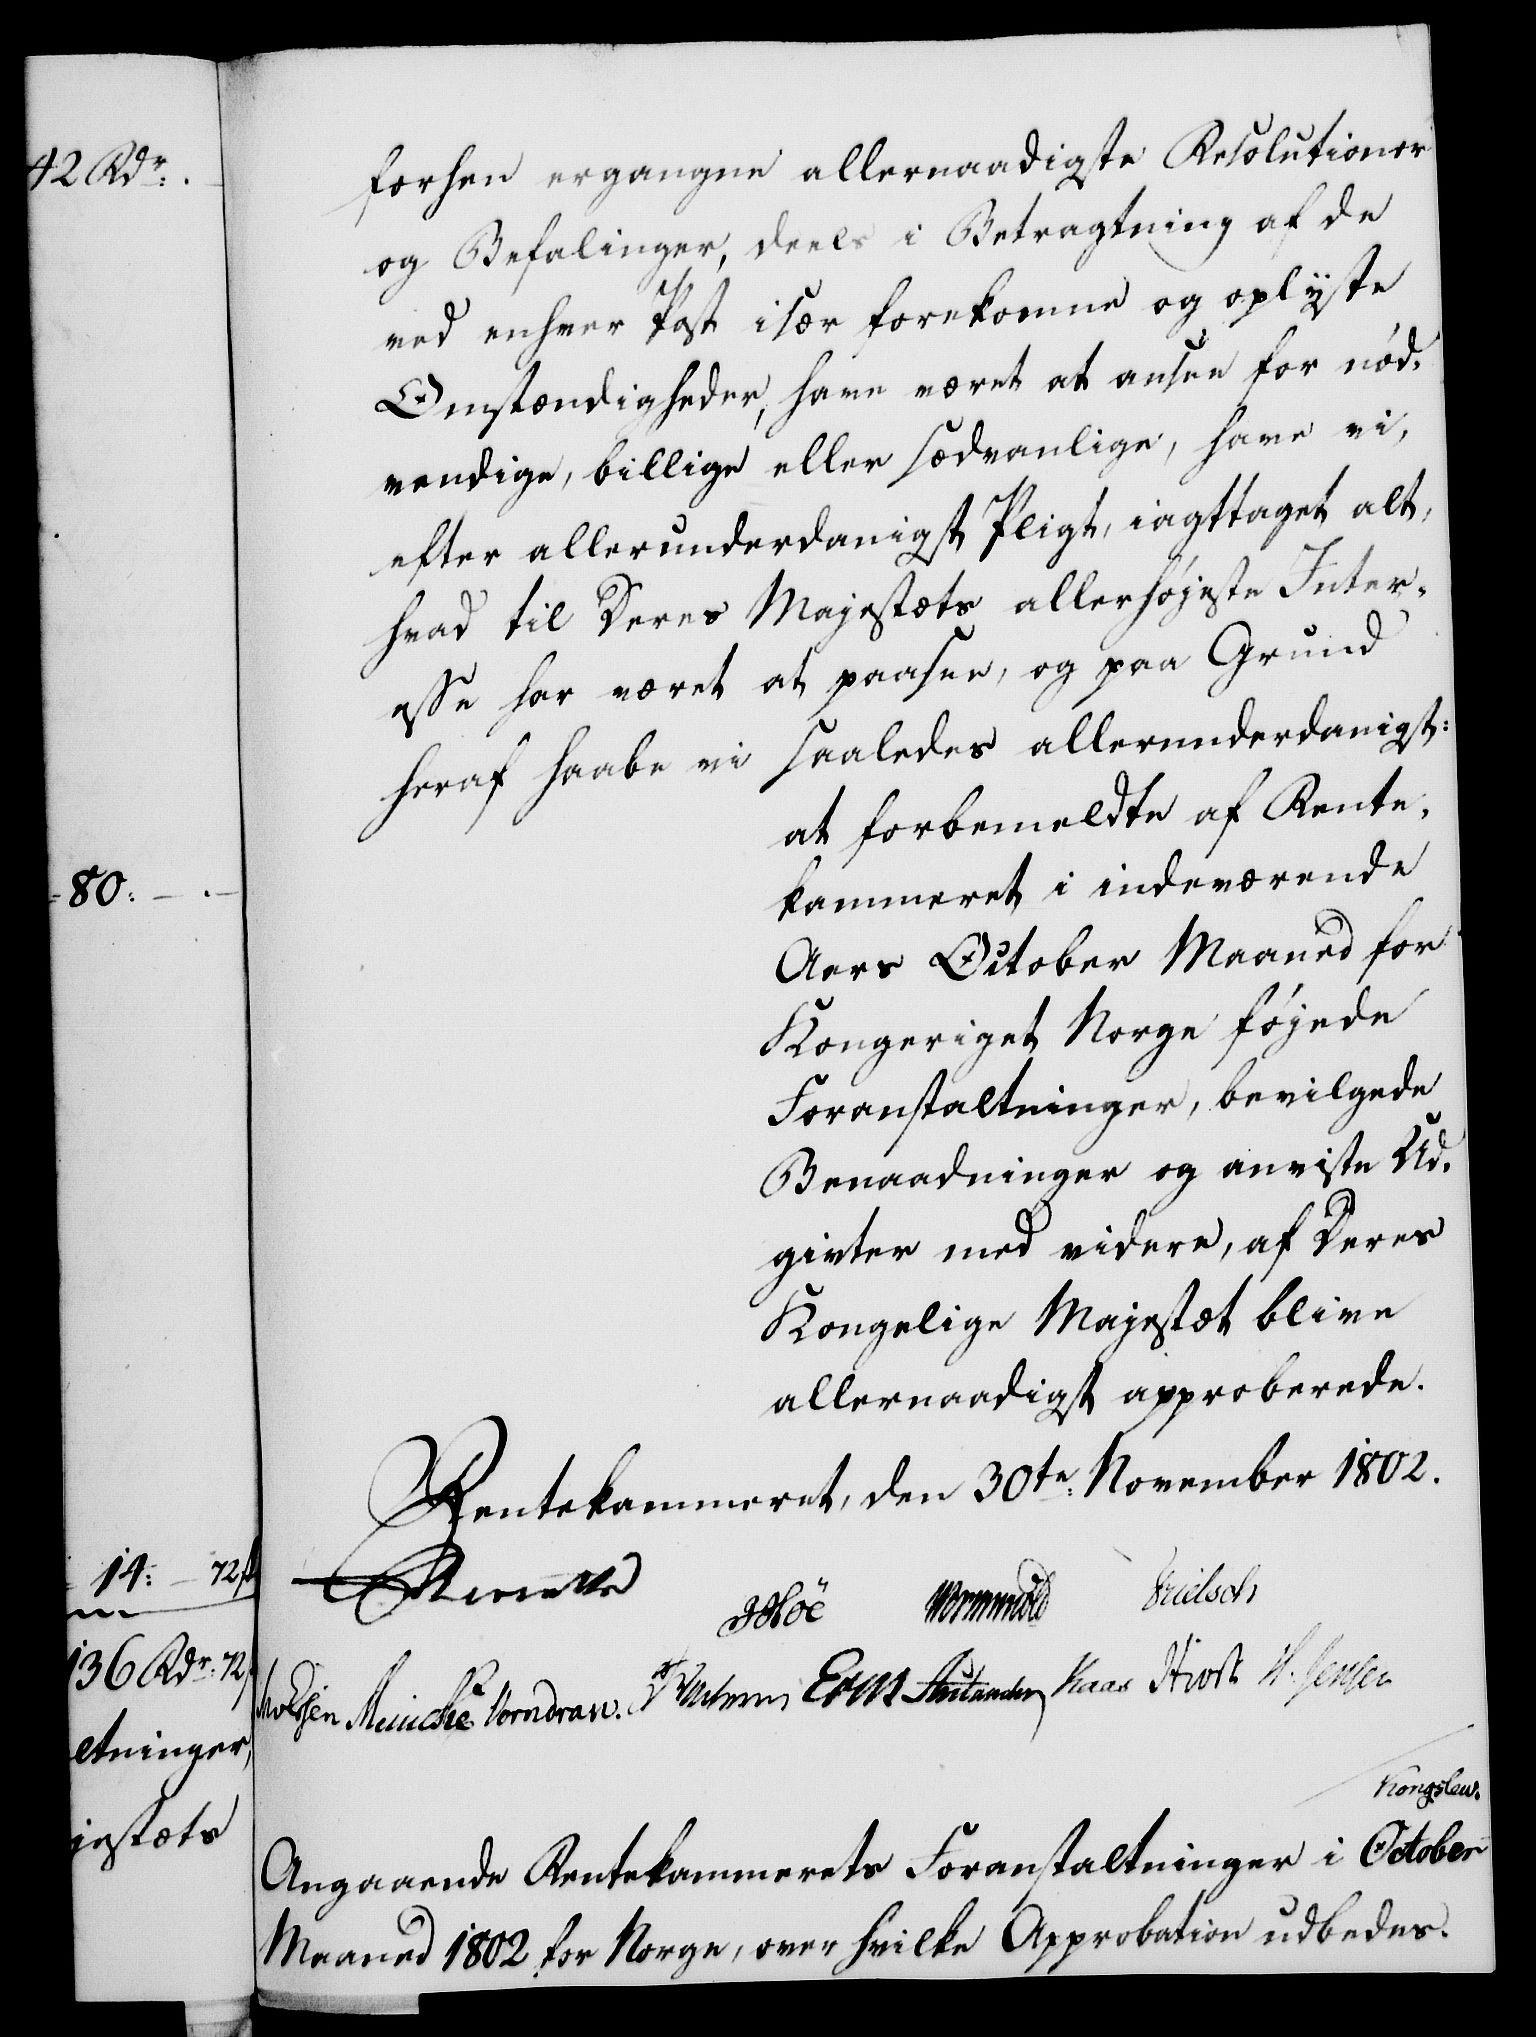 42 Rdr: . —
80: — . —
14: — 72 ß
136 Rdr: 72 ß
ltninger,
jestæts
forhen ergangne allernaadigste Resolutioner
og Befalinger, deels i Betragtning af de
ved enhver Post især forekomne og oplÿste
Omstændigheder, have været at ansee for nöd-
vendige, billige eller sædvanlige, have vi,
efter allerunderdanigst Pligt, iagttaget alt,
hvad til Deres Majestæts allerhöjeste Inter-
esse har været at paasee, og paa Grund
heraf haabe vi saaledes allerunderdanigst:
at forbemeldte af Rente-
kammeret i indeværende
Aars October Maaned for
Kongeriget Norge föjede
Foranstaltninger, bevilgede
Benaadninger og anviste Ud-
givter med videre, af Deres
Kongelige Majestæt blive
allernaadigst approberede.
Rentekammeret, den 30te: November 1802.
Wormskiold
Meincke Vorndran. Kaas H. Jensen
Kongslew.
Angaaende Rentekammerets Foranstaltninger i October
Maaned 1802 for Norge, over hvilke Approbation udbedes.